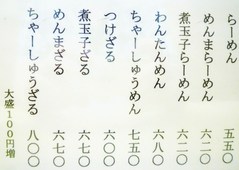 らーめん 五五〇
めんまらーめん 六二〇
煮玉子らーめん 六二〇
わんたんめん 六八〇
ちゃーしゅうめん 七五〇
つけざる 六〇〇
煮玉子ざる 六七〇
めんまざる 六七〇
ちゃーしゅうざる 八〇〇
大盛100円増